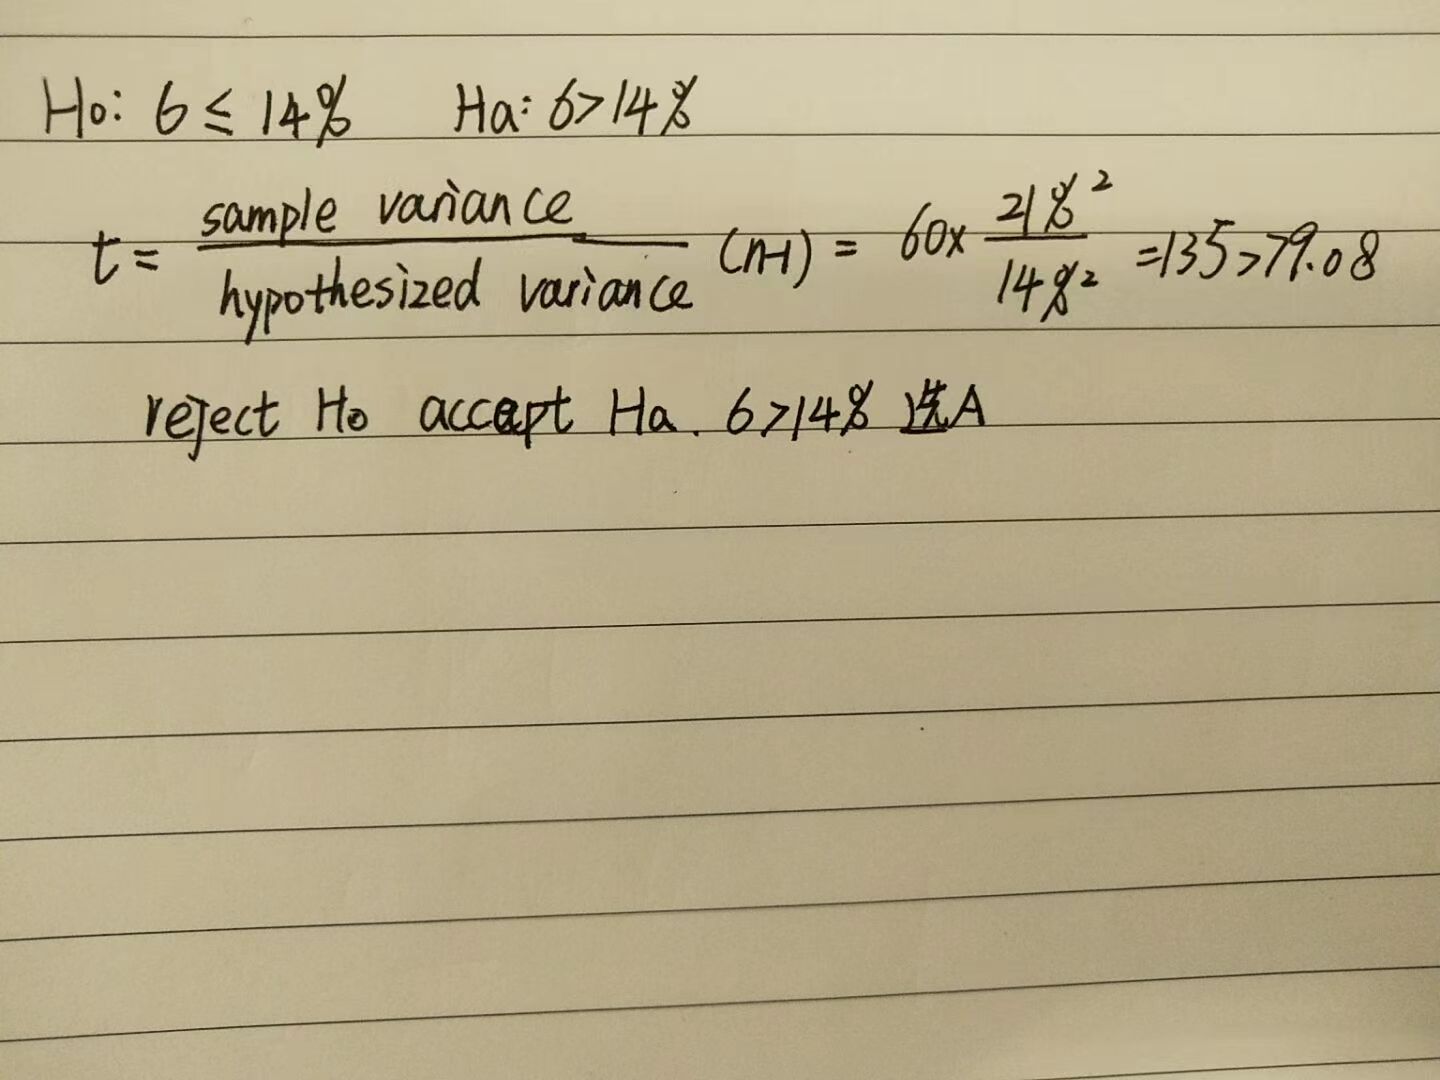 Ho: 6 ≤ 14% Ha: 6>14%
t = sample variance / hypothesized variance (n-1) = 60x 21%² / 14%² =135>79.08
reject Ho accept Ha. 6>14% 选A